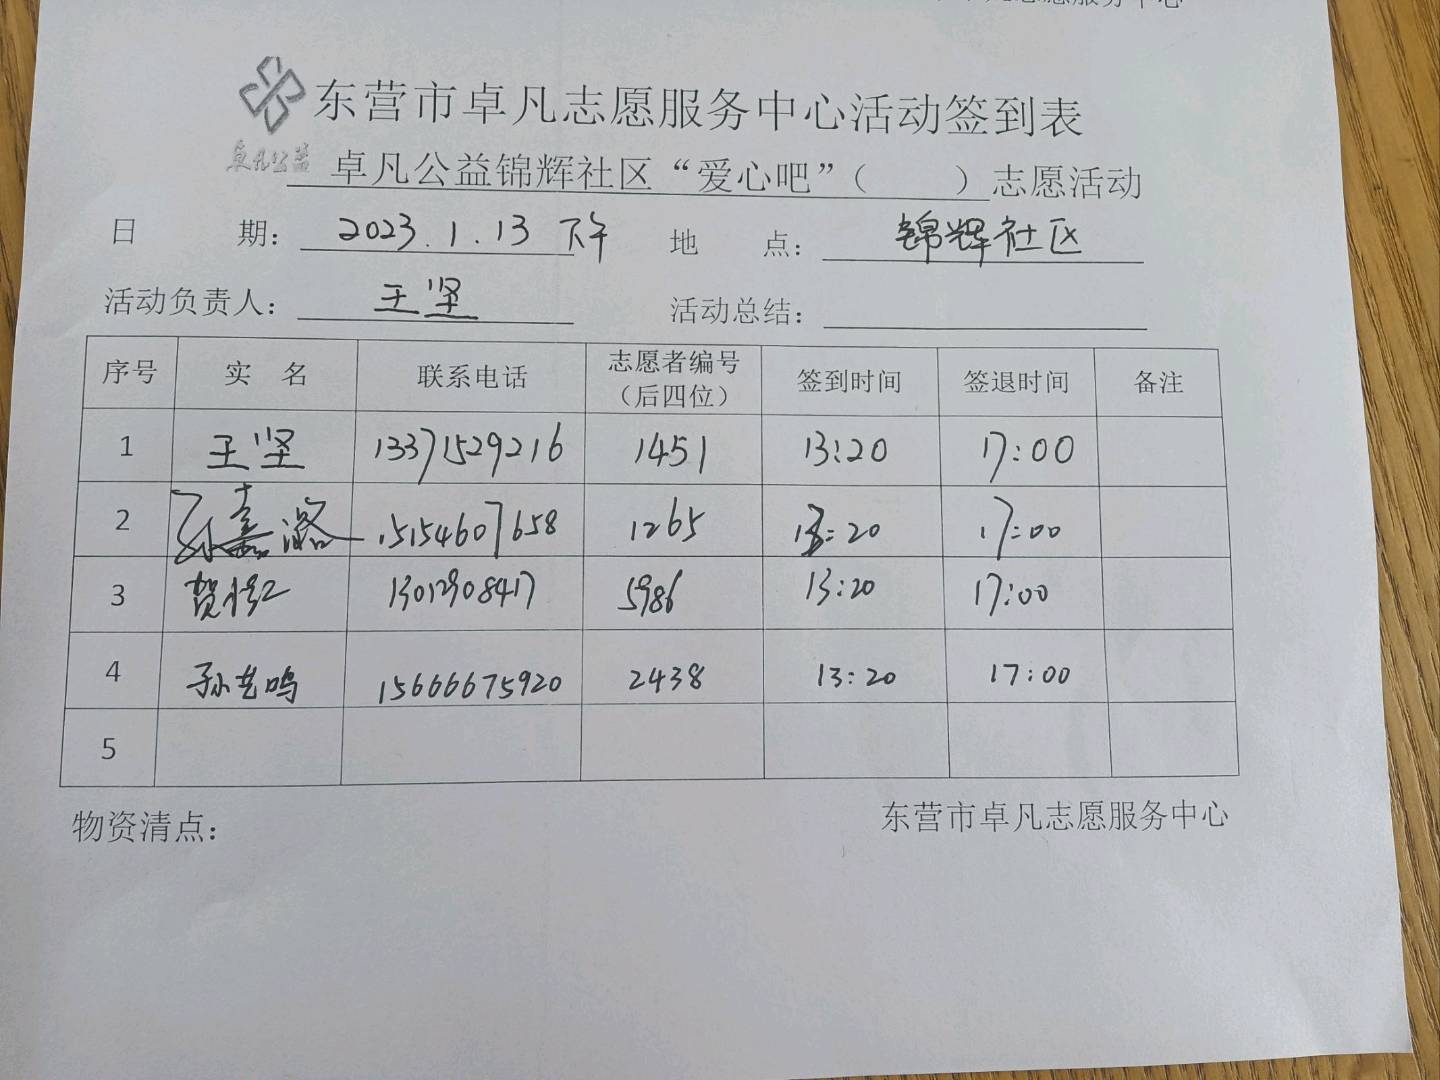 东营市卓凡志愿服务中心活动签到表
卓凡公益
卓凡公益锦辉社区“爱心吧”（ ）志愿活动
日 期： 2023.1.13 下午 地 点： 锦辉社区
活动负责人： 王坚 活动总结：
序号 实 名 联系电话 志愿者编号（后四位） 签到时间 签退时间 备注
1 王坚 13371529216 1451 13:20 17:00
2 孙嘉潞 15154607658 1265 13:20 17:00
3 贺 13012908417 5986 13:20 17:00
4 孙艺鸣 15666675920 2438 13:20 17:00
5
物资清点： 东营市卓凡志愿服务中心